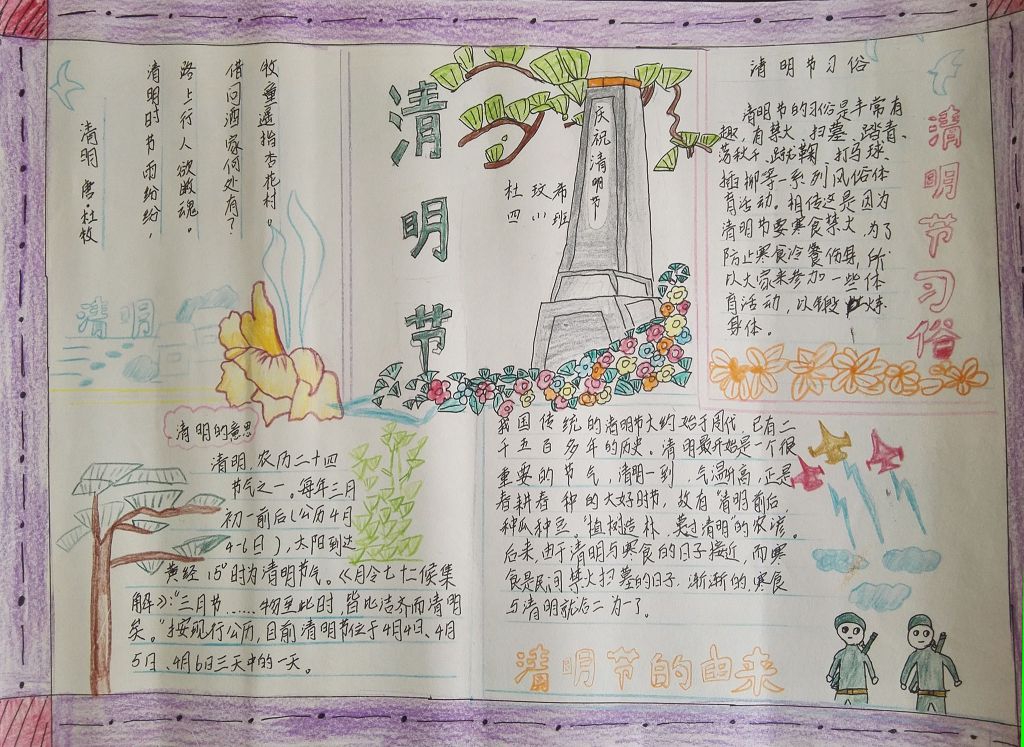 清明 唐·杜牧
清明时节雨纷纷，
路上行人欲断魂。
借问酒家何处有？
牧童遥指杏花村。
清明
清明节
庆祝清明节
杜玟希
四小班
清明节习俗
清明节的习俗是丰常有
趣，有禁火、扫墓、踏青、
荡秋千、蹴鞠、打马球、
插柳等一系列风俗体
育活动。相传这是因为
清明节要寒食禁火，为了
防止寒食冷餐伤身，所
以大家来参加一些体
育活动，以锻炼
身体。
清明节习俗
清明的意思
清明，农历二十四
节气之一。每年三月
初一前后（公历4月
4-6日），太阳到达
黄经15°时为清明节气。《月令七十二候集
解》：“三月节……物至此时，皆以洁齐而清明
矣。”按现行公历，目前清明节位于4月4日、4月
5日、4月6日三天中的一天。
我国传统的清明节大约始于周代，已有二
千五百多年的历史。清明最开始是一个很
重要的节气，清明一到，气温渐高，正是
春耕春种的大好时节，故有“清明前后，
种瓜种豆。”“植树造林，莫过清明”的农谚。
后来，由于清明与寒食的日子接近，而寒
食是民间禁火扫墓的日子，渐渐的，寒食
与清明就合二为一了。
清明节的由来